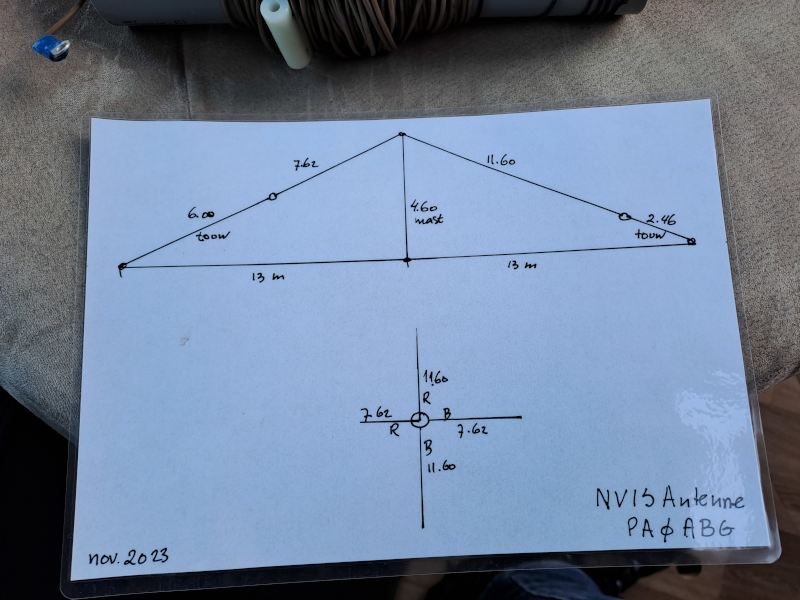 7.62
11.60
6.00
touw
4.60
mast
2.46
touw
13 m
13 m
11.60
R
7.62
B
R
7.62
B
11.60
NVIS Antenne
PAØABG
nov. 2023